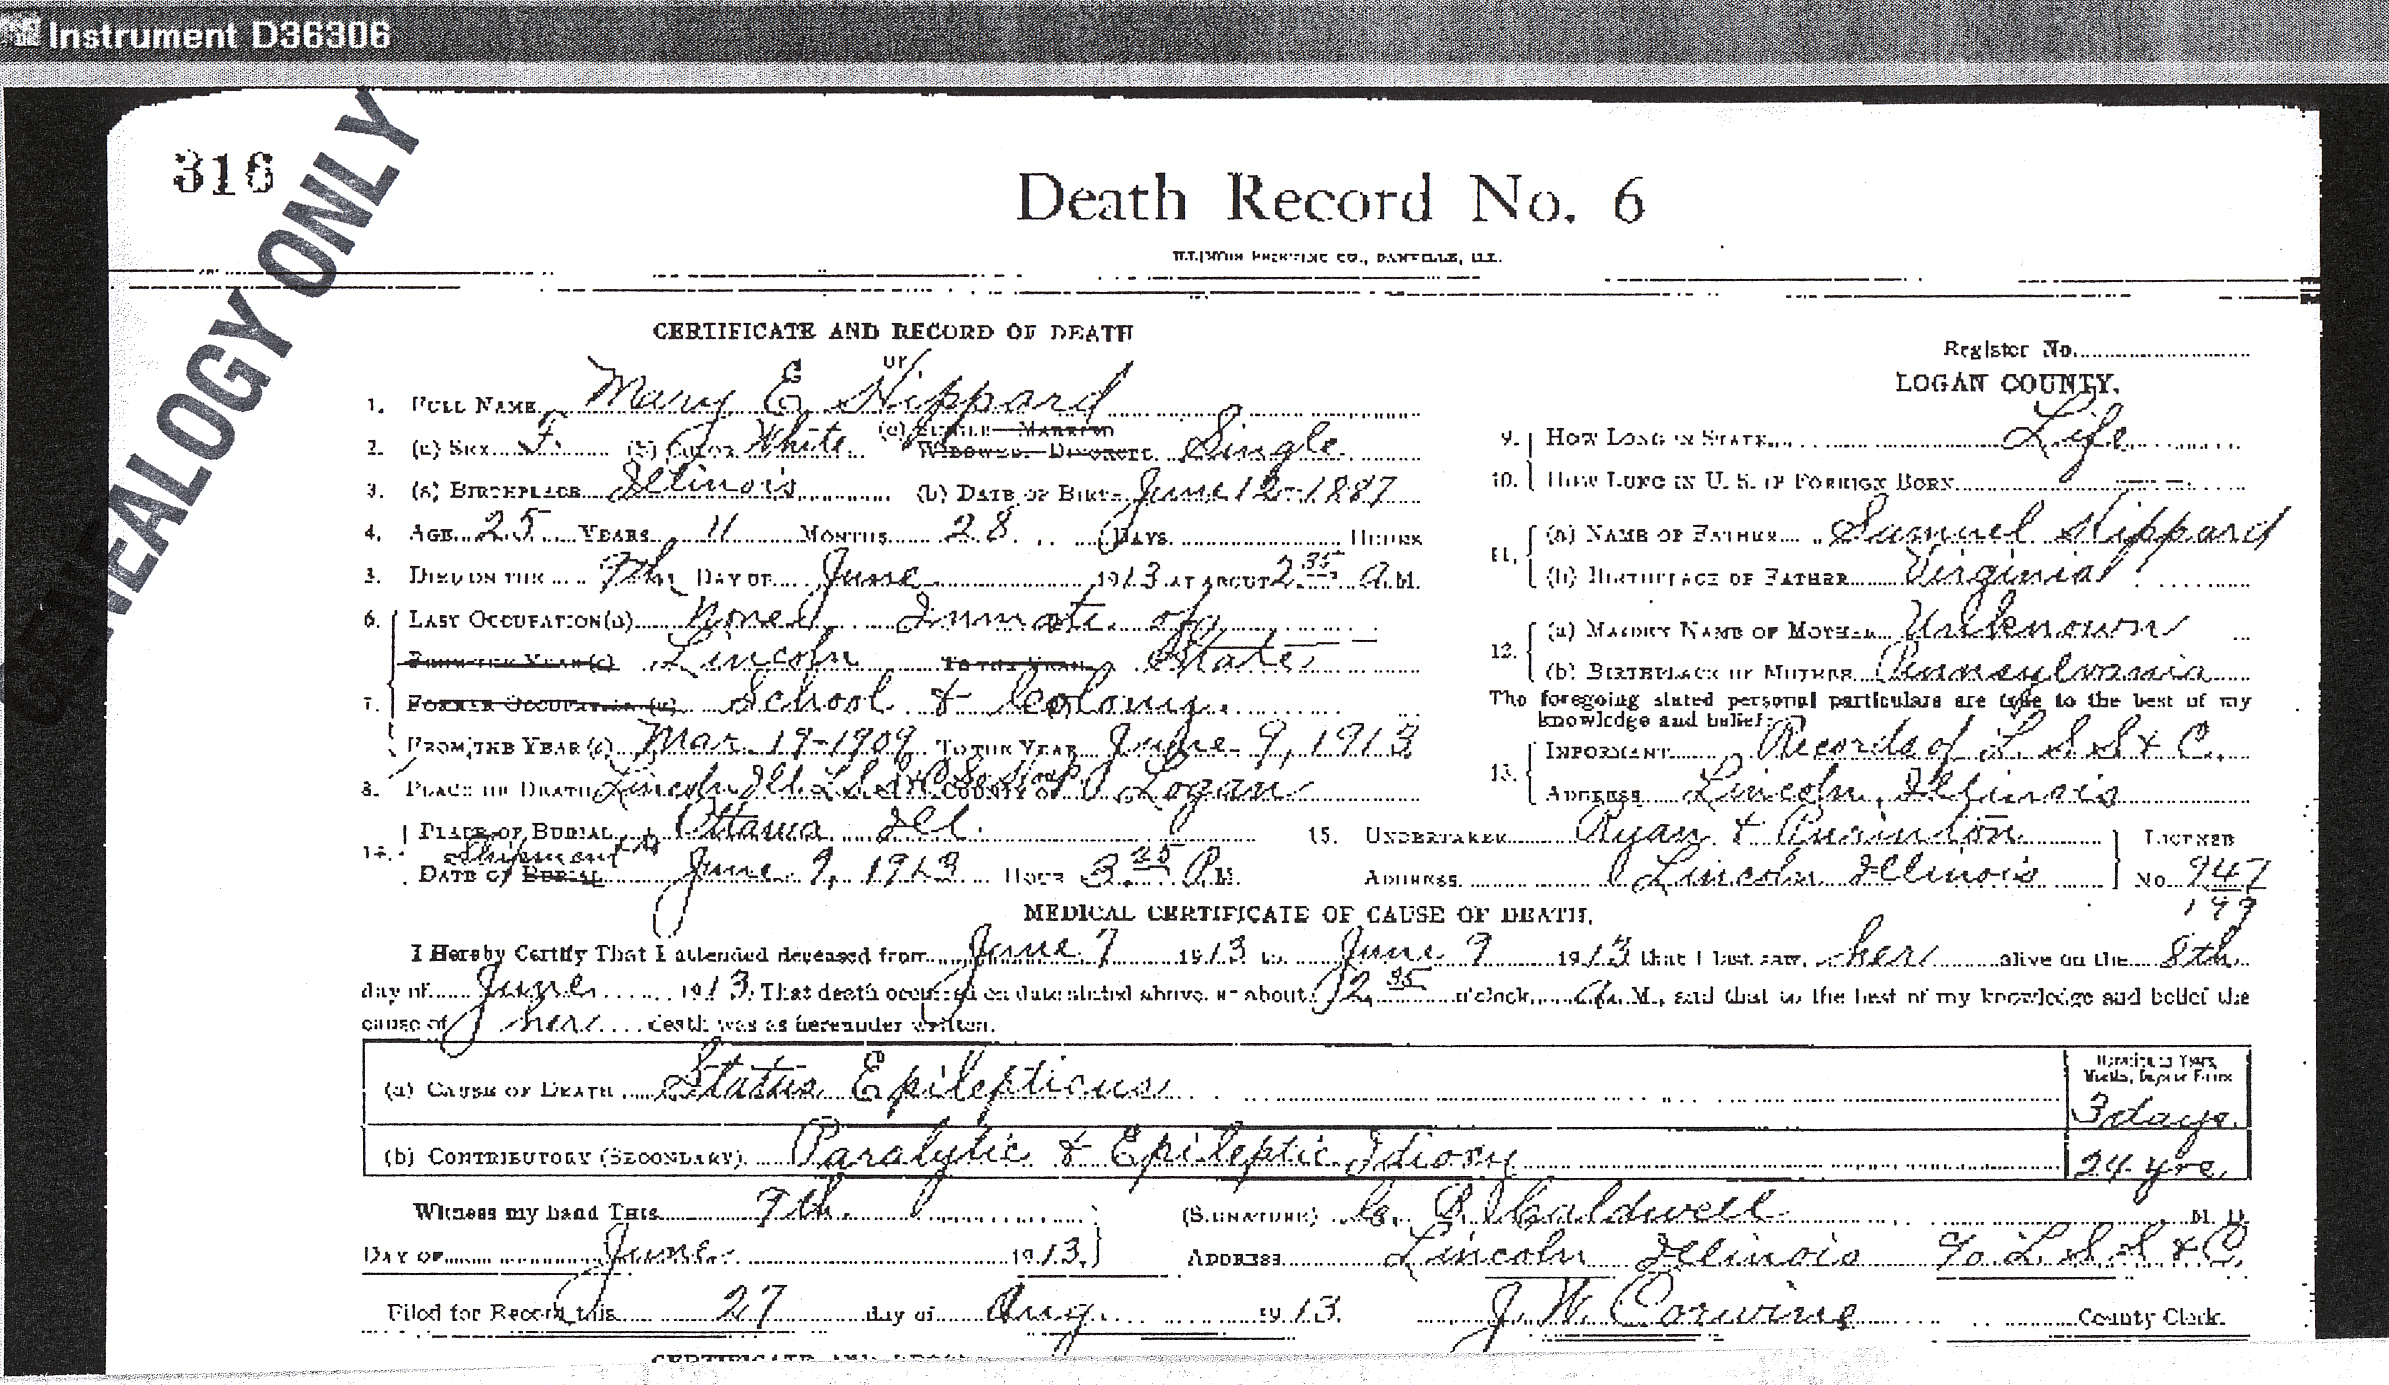 Instrument D36306
316
GENEALOGY ONLY
Death Record No. 6
ILLINOIS PRINTING CO., DANVILLE, ILL.
CERTIFICATE AND RECORD OF DEATH
OF
Register No.
LOGAN COUNTY.
1. FULL NAME Mary E. Hippard
2. (a) SEX F. (b) COLOR White (c) SINGLE MARRIED WIDOWED DIVORCED Single
3. (a) BIRTHPLACE Illinois (b) DATE OF BIRTH June 12-1887
4. AGE 25 YEARS 11 MONTHS 28 DAYS HOURS
5. DIED ON THE 9th DAY OF June 1913 AT ABOUT 2 35 A.M.
6. LAST OCCUPATION (a) None Inmate of
FROM THE YEAR (c) Lincoln TO THE YEAR State
7. FORMER OCCUPATION (a) School & Colony.
FROM THE YEAR (c) Mar. 19-1909 TO THE YEAR June 9, 1913
8. PLACE OF DEATH Lincoln Ill. L.S.S.&C. COUNTY OF Logan
9. HOW LONG IN STATE Life
10. HOW LONG IN U. S. IF FOREIGN BORN
11. (a) NAME OF FATHER Samuel Hippard
(b) BIRTHPLACE OF FATHER Virginia
12. (a) MAIDEN NAME OF MOTHER Unknown
(b) BIRTHPLACE OF MOTHER Pennsylvania
The foregoing stated personal particulars are true to the best of my
knowledge and belief:
13. INFORMANT Records of L. S. S. & C.
ADDRESS Lincoln, Illinois
14. PLACE OF BURIAL Ottawa Ill.
Shipment
DATE OF BURIAL June 9, 1913 HOUR 3 25 P.M.
15. UNDERTAKER Ryan & LICENSE
ADDRESS Lincoln Illinois No 947
199
MEDICAL CERTIFICATE OF CAUSE OF DEATH.
I Hereby Certify That I attended deceased from June 7 1913 to June 9 1913 that I last saw her alive on the 8th
day of June 1913. That death occurred on date stated above, at about 2 35 o'clock A. M., and that to the best of my knowledge and belief the
cause of her death was as hereunder written.
Duration in Years, Months, Days or Hours
(a) CAUSE OF DEATH Status Epilepticus 3 days.
(b) CONTRIBUTORY (SECONDARY) Paralytic & Epileptic Idiocy 24 yrs.
Witness my hand This 9th (SIGNATURE) Caldwell M. D.
DAY OF June 1913. ADDRESS Lincoln Illinois c/o L. S. S. & C.
Filed for Record this 27 day of Aug. 1913. J. W. Corwine County Clerk.
CERTIFICATE AND RECORD